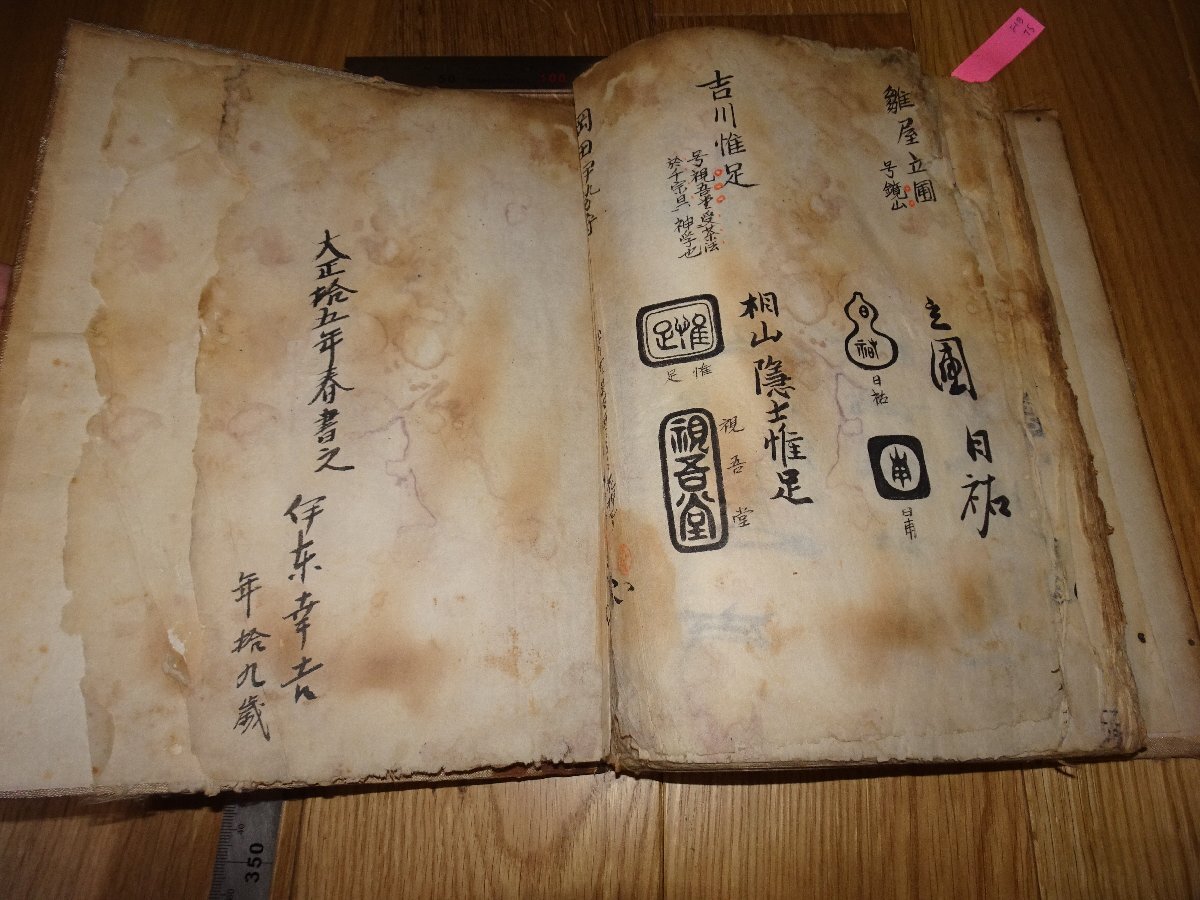 雛屋立圃
号鏡山
立圃
日祐
日祐
日祐
吉川惟足
号視吾堂受茶法
於千宗旦神学也
相山隠士惟足
惟足
惟足
視吾堂
視吾堂
大正拾五年春書之
伊东幸吉
年拾九歳
50
100
350